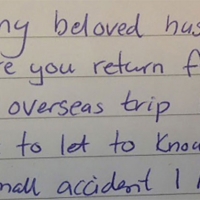 my beloved hus
re you return f
overseas trip
to let to know
mall accident I